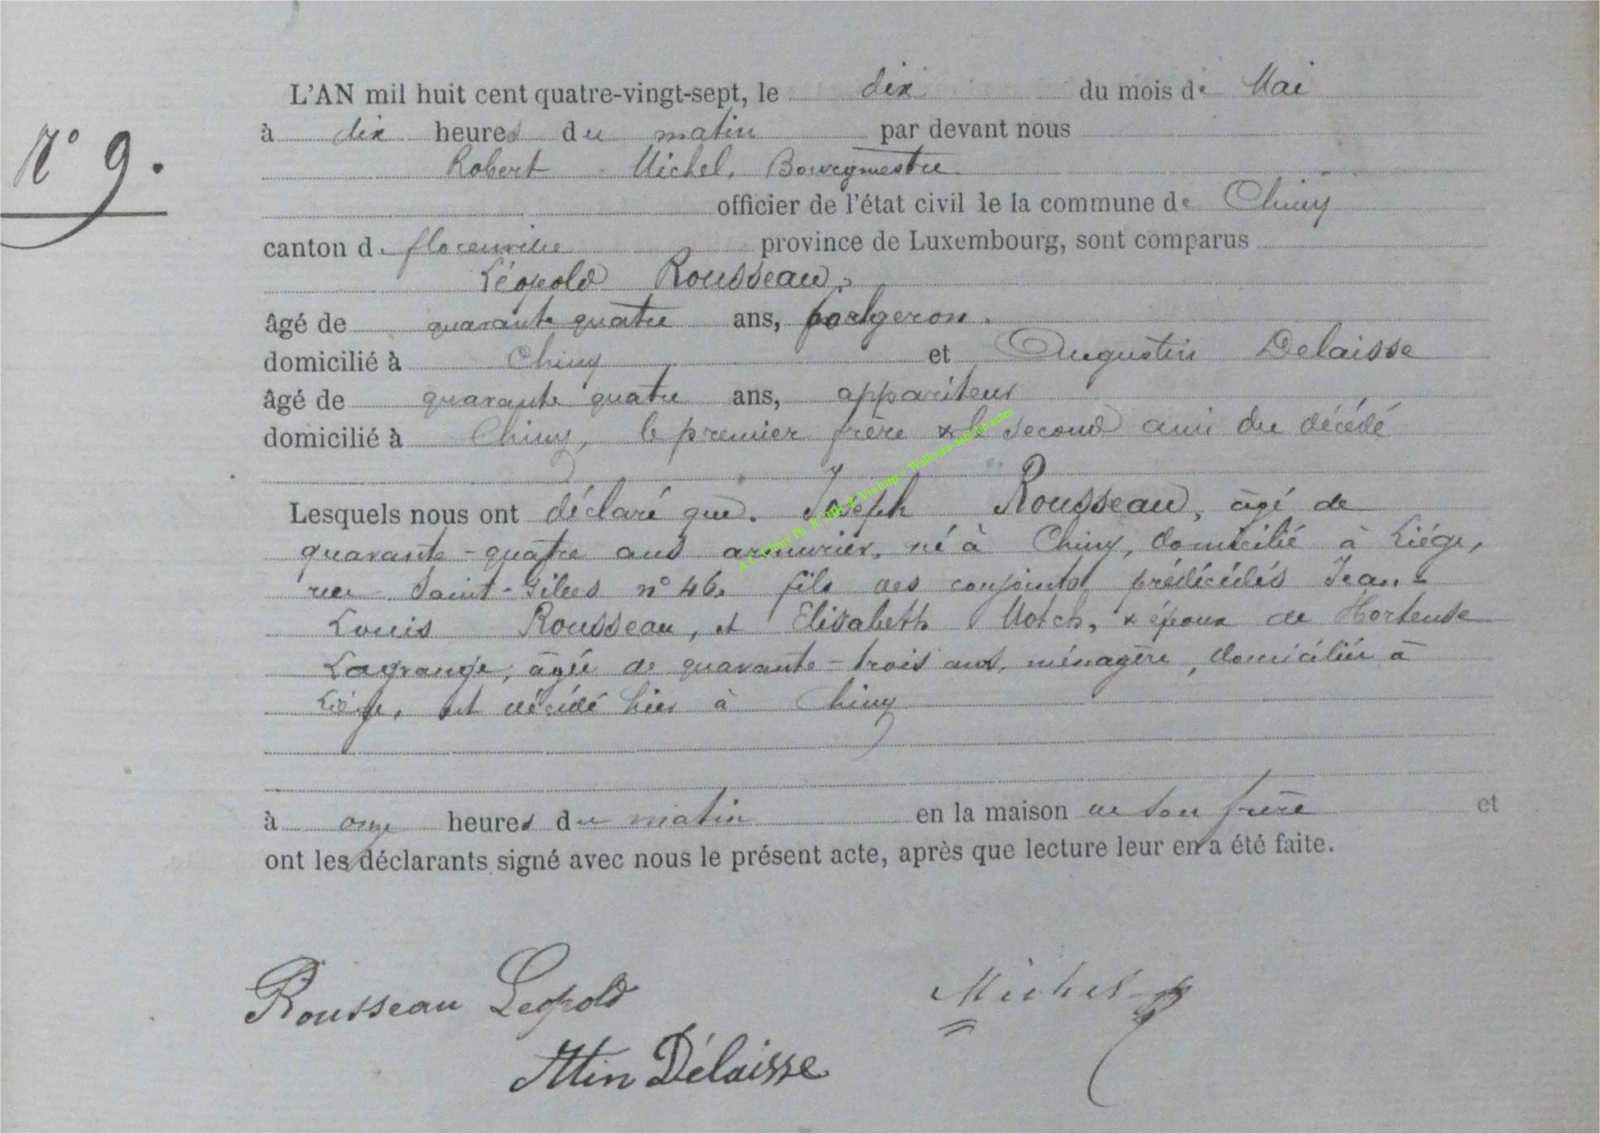 L'AN mil huit cent quatre-vingt-sept, le dix du mois de Mai
N° 9.
à dix heures du matin par devant nous
Robert Michel, Bourgmestre
officier de l'état civil de la commune de Chiny
canton de florenville province de Luxembourg, sont comparus
Léopold Rousseau,
âgé de quarante quatre ans, forgeron.
domicilié à Chiny et Augustin Delaisse
âgé de quarante quatre ans, appariteur
domicilié à Chiny, le premier frère & le second ami du décédé
Lesquels nous ont déclaré que. Joseph Rousseau, âgé de
quarante-quatre ans armurier, né à Chiny, domicilié à Liége,
rue Saint-Gilles n° 46, fils des conjoints prédécédés Jean-
Louis Rousseau, et Elisabeth Motch, & époux de Hortense
Lagrange, âgée de quarante-trois ans, ménagère, domiciliée à
Liége, est décédé hier à Chiny
à onze heures du matin en la maison de son frère et
ont les déclarants signé avec nous le présent acte, après que lecture leur en a été faite.
Rousseau Leopold Michel
Attin Délaisse